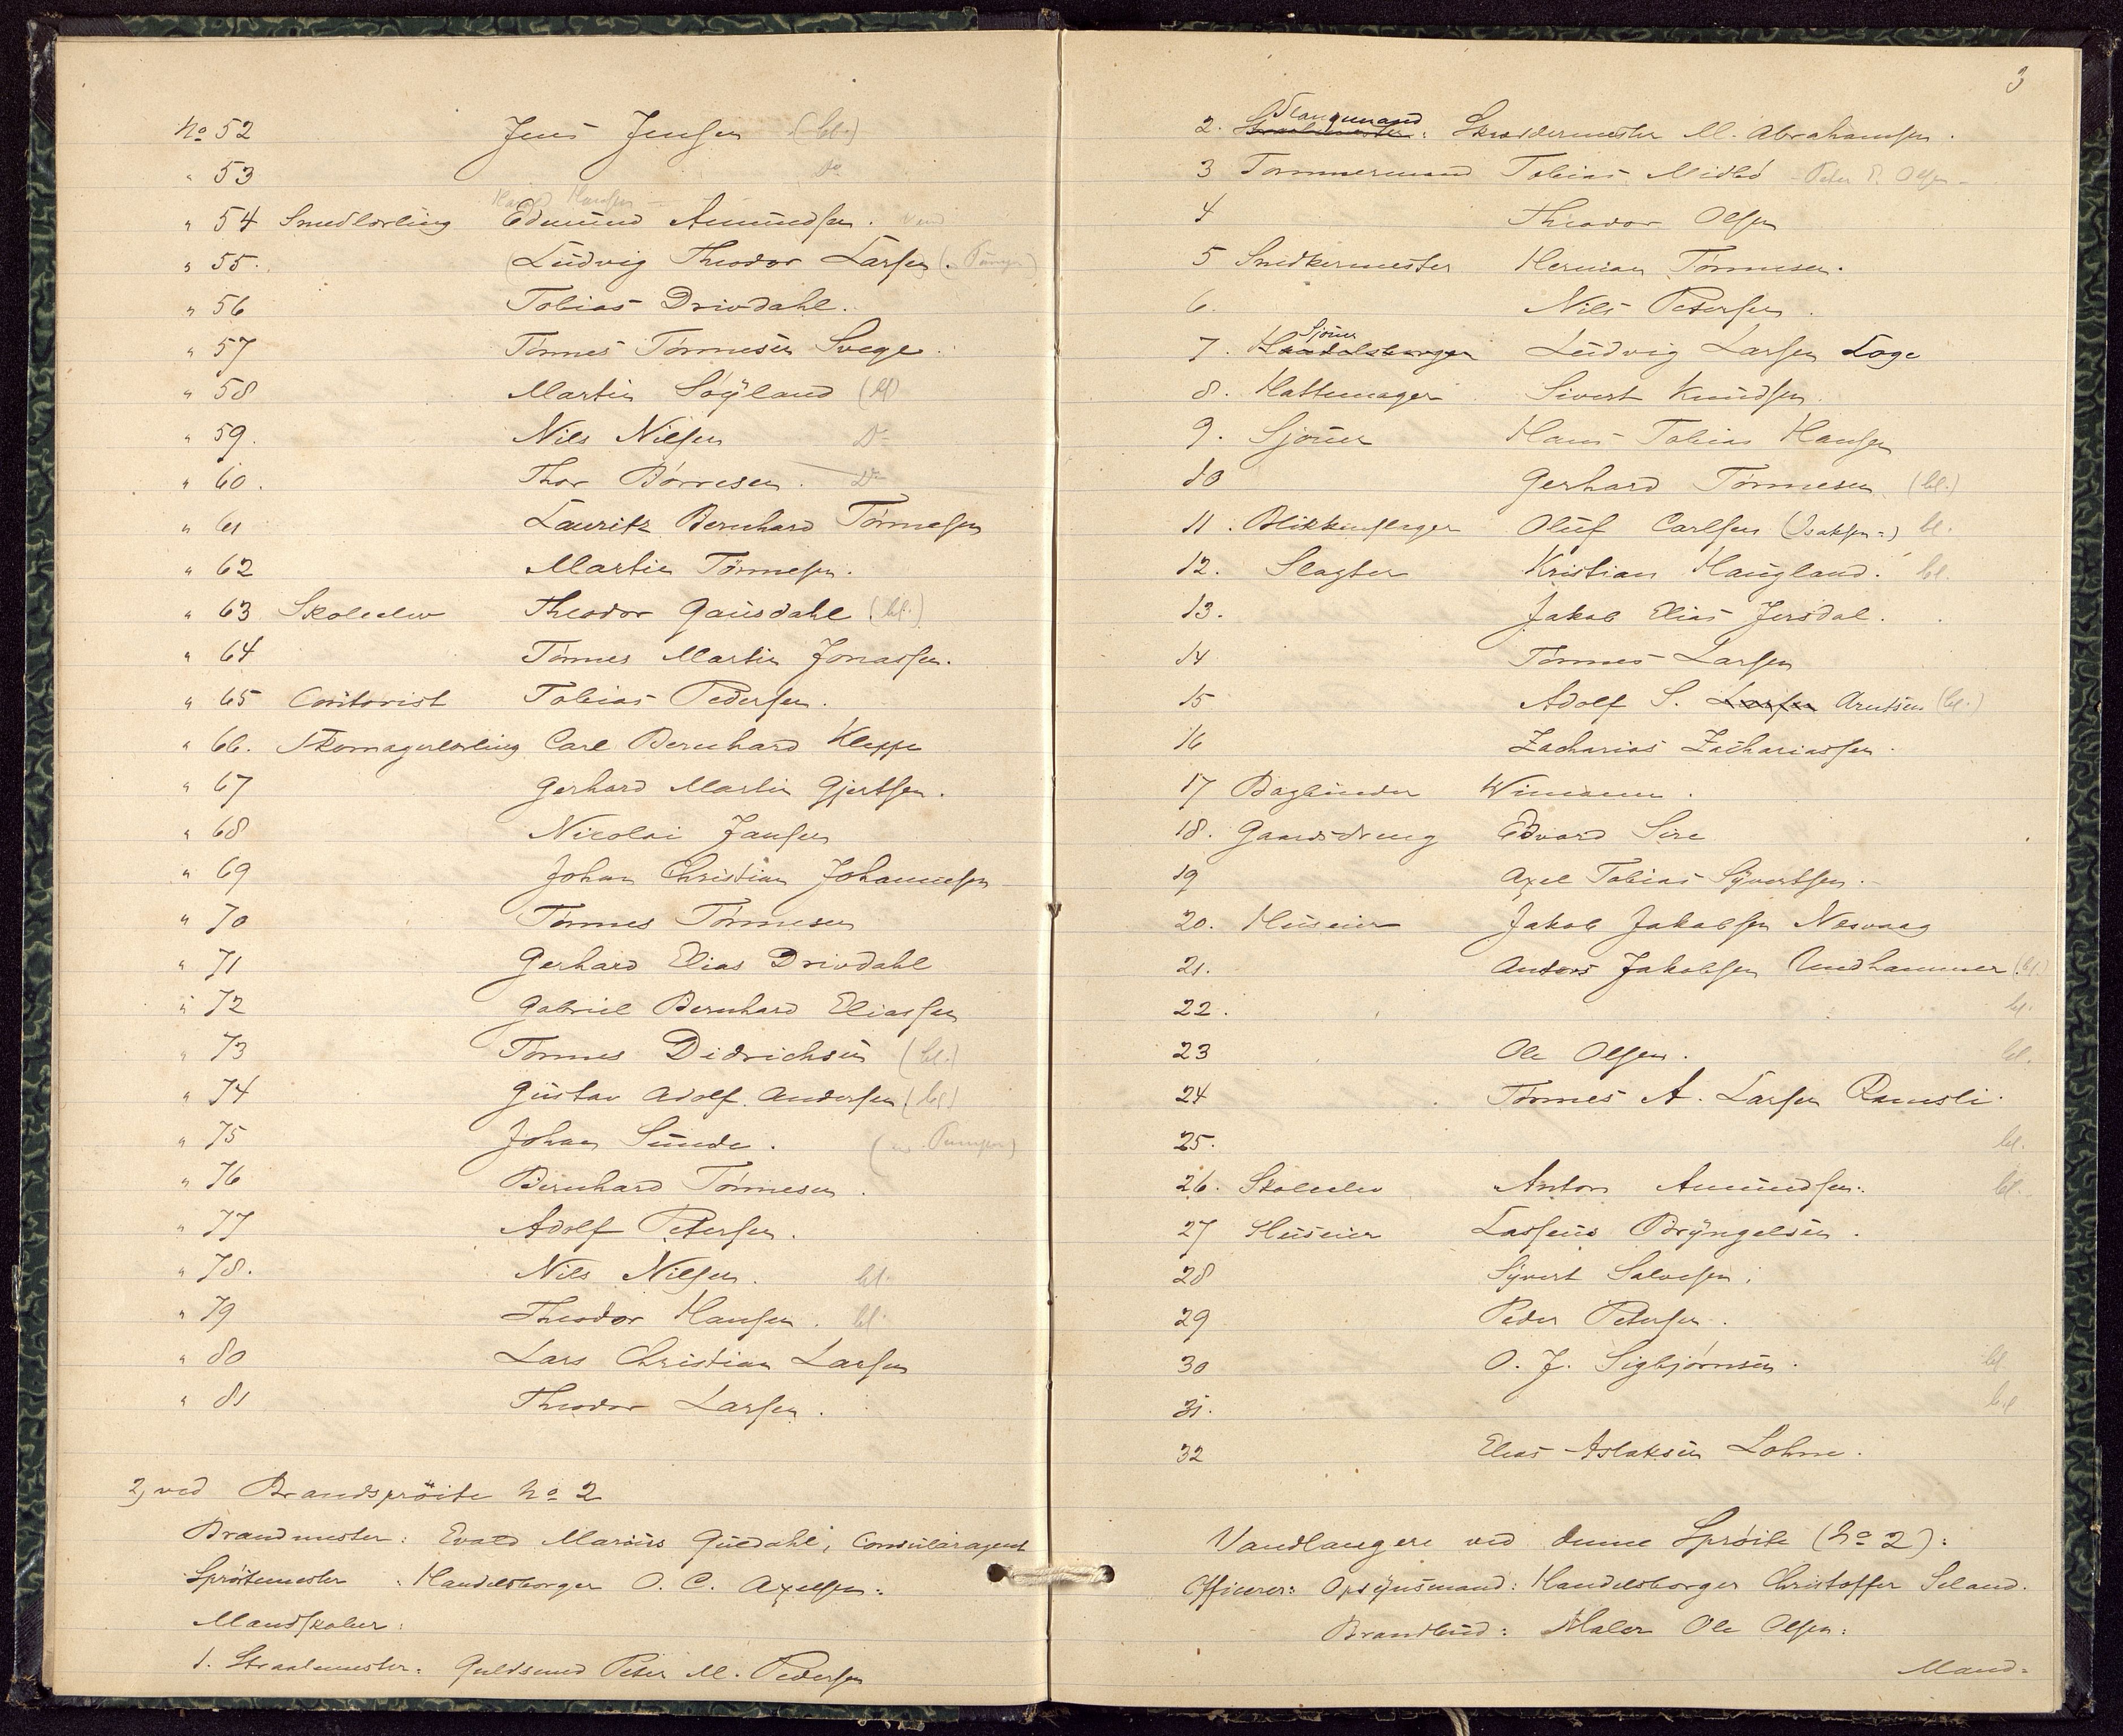 No 52 Jens Jensen (bl.)
" 53 Do
Hansen
" 54 Smedlærling Edmund Amundsen.
" 55. (Ludvig Theodor Larsen.
" 56 Tobias Drivdahl.
" 57 Tönnes Tönnesen Svege.
" 58 Martin Söyland (bl)
" 59. Nils Nilsen Do
" 60. Thor Börresen. Do
" 61 Lauritz Bernhard Tönnesen
" 62 Martin Tönnesen.
" 63 Skoleelev Theodor Gausdahl (bl.)
" 64 Tönnes Martin Jonassen.
" 65 Contorist Tobias Pedersen.
" 66. Skomagerlærling Carl Bernhard Kleppe
" 67 Gerhard Martin Gjertsen.
" 68 Nicolai Jansen
" 69 Johan Christian Johannesen
" 70 Tönnes Tönnesen
" 71 Gerhard Elias Drivdahl
" 72 Gabriel Bernhard Eliassen
" 73 Tönnes Didrichsen (bl.)
" 74 Gustav Adolf Andersen (bl.)
" 75 Johan Sunde. (Pumpen)
" 76 Bernhard Tönnesen.
" 77 Adolf Petersen.
" 78. Nils Nilsen. bl.
" 79 Theodor Hansen. bl.
" 80 Lars Christian Larsen
" 81 Theodor Larsen.
2, ved Brandspröite No 2
Brandmester: Evald Marius Guldahl, Consularagent
Spröitemester: Handelsborger O. C. Axelsen.
Mandskaber:
1. Straalemester: Guldsmed Peter M. Pedersen
3
Slangemand
2. Straalemester: Skræddermester M. Abrahamsen.
3 Tømmermand Tobias Midbö Peter P. Olsen
4 Theodor Olsen
5 Snedkermester Herman Tönnesen.
6. Nils Petersen.
Sjöuer
7. Handelsborger Ludvig Larsen Loge
8. Hattemager Sivert Knudsen.
9. Sjöuer Hans Tobias Hansen
10 Gerhard Tönnesen (bl.)
11. Blikkenslager Oluf Carlsen (Isaksen) bl.
12. Slagter Kristian Haugland. bl.
13. Jakob Elias Jersdal.
14 Tönnes Larsen
15 Adolf S. Larsen Arntsen (bl.)
16 Zacharias Zachariassen.
17 Bogbinder Wimann.
18. Gaardsdreng Edvard Sire
19 Axel Tobias Syvertsen.
20. Huseier Jakob Jakobsen Nesvaag
21. Anders Jakobsen Undhammer (bl.)
22. bl.
23 Ole Olsen. bl.
24 Tönnes A. Larsen Ramsli.
25. bl.
26. Skoleelev Anton Amundsen. bl.
27 Huseier Lasseus Bryngelsen.
28 Syvert Salvesen.
29 Peder Petersen.
30 O. J. Sigbjörnsen. bl
31. bl
32 Elias Aslaksen Lohne.
Vandlangere ved denne Spröite (No 2):
Officerer: Opsynsmand: Handelsborger Christoffer Seland.
Brandbud: Maler Ole Olsen.
Mand=